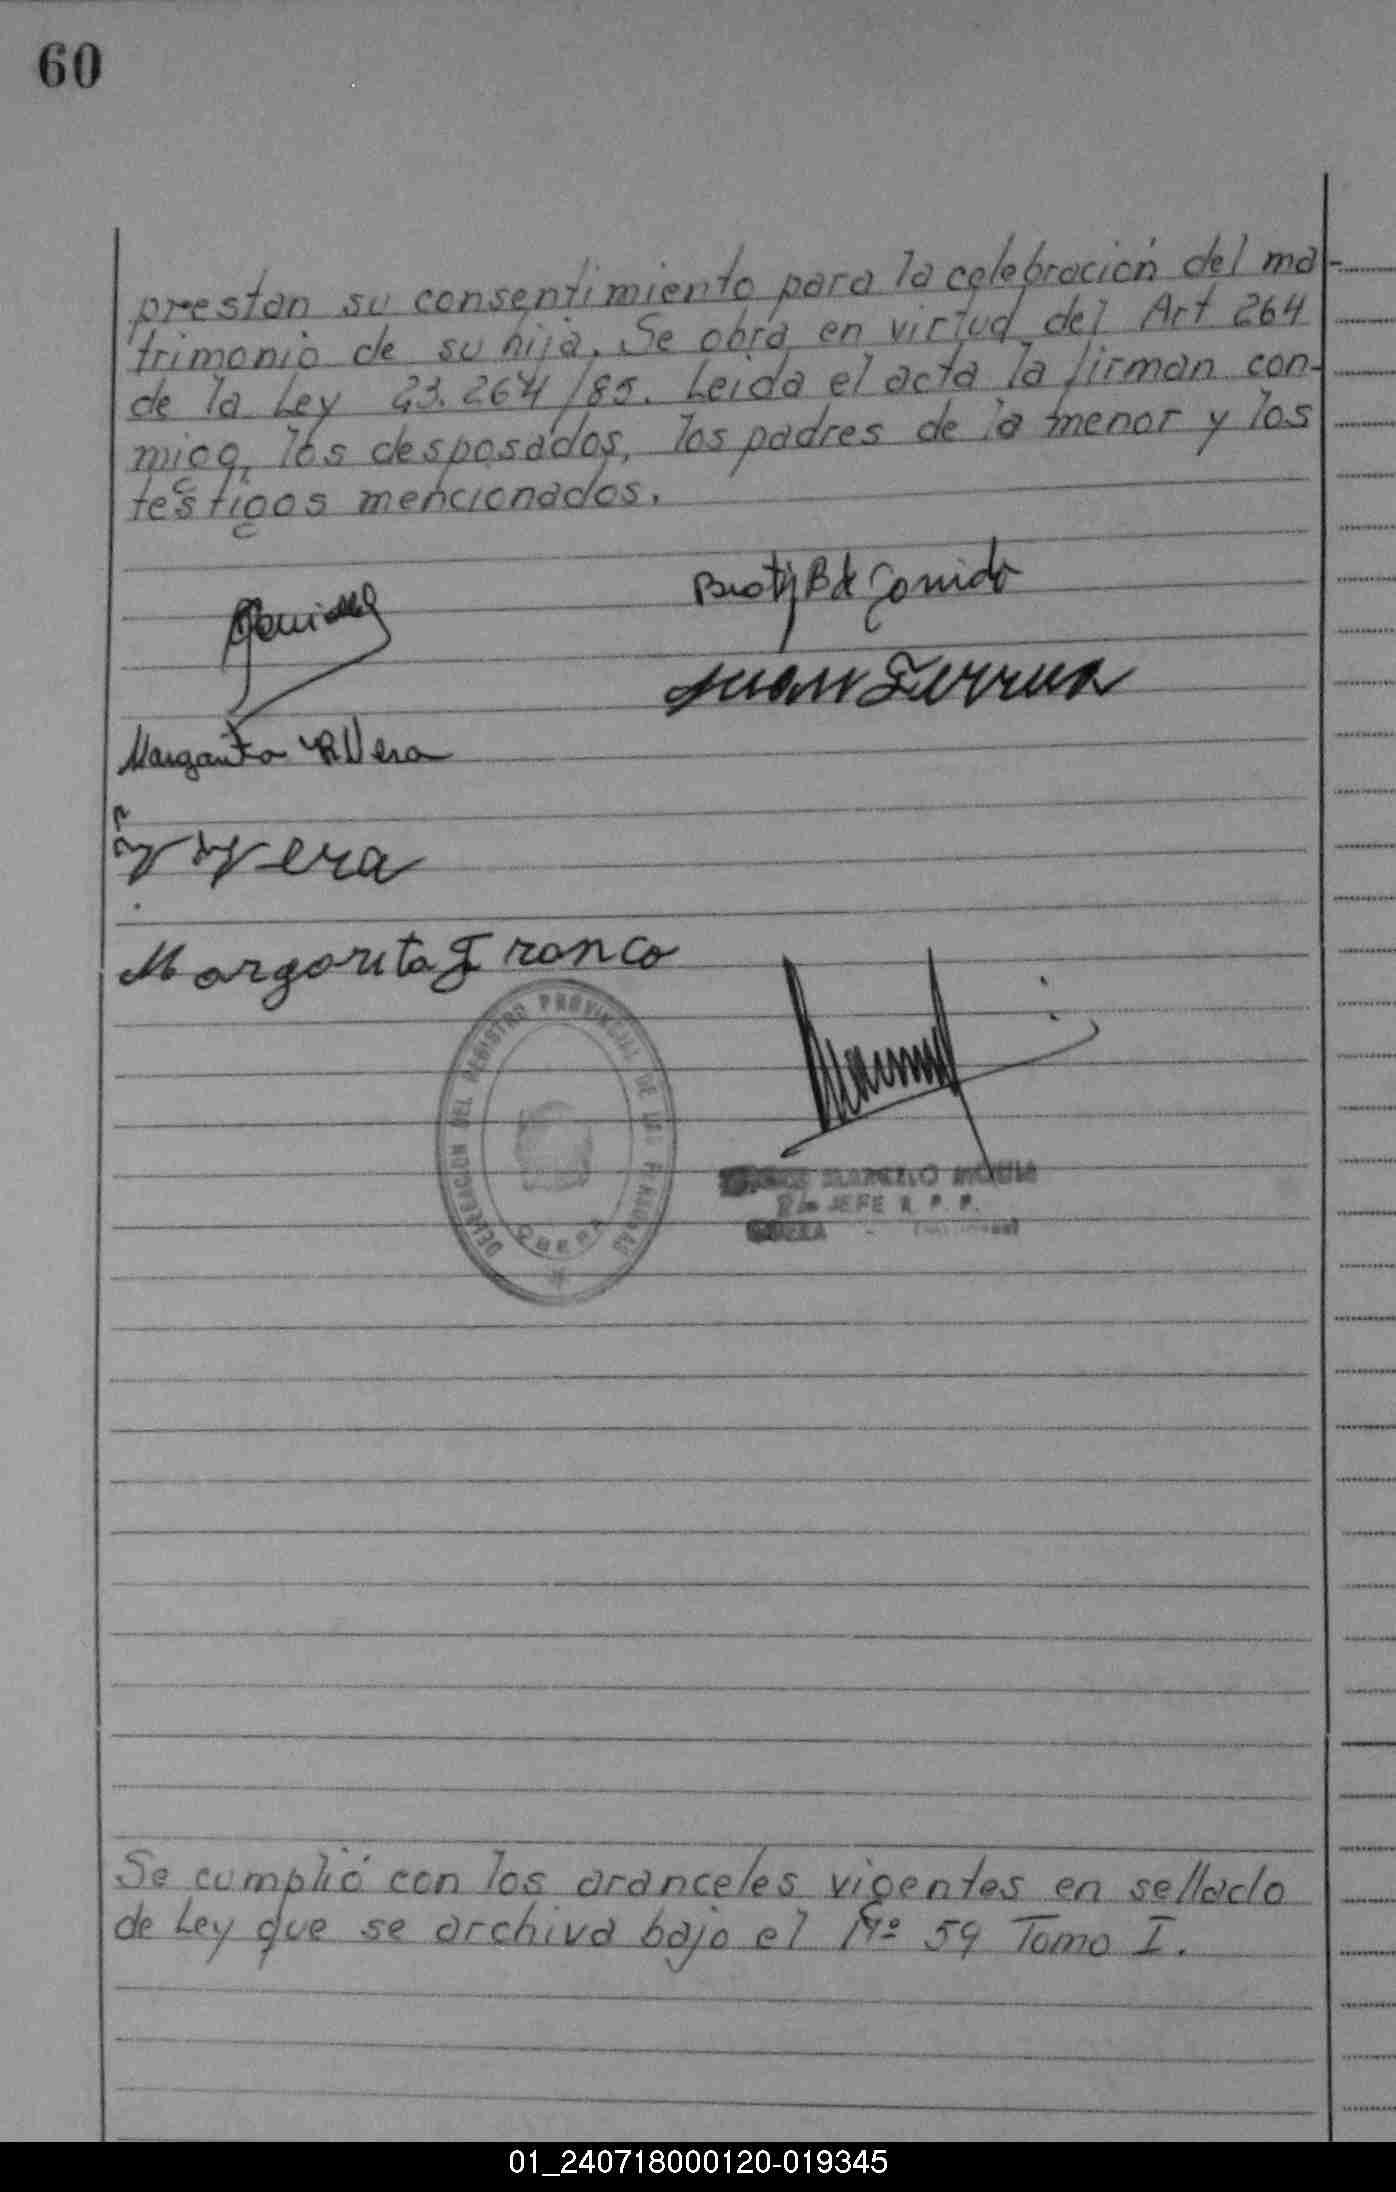 60
prestan su consentimiento para la celebración del ma-
trimonio de su hija. Se obra en virtud del Art 264
de la Ley 23.264/85. Leida el acta la firman con-
migo, los desposados, los padres de la menor y los
testigos mencionados.
B de
Juan
Margarita R Vera
Vera
Margarita Franco
DELEGACION DEL REGISTRO PROVINCIAL DE LAS PERSONAS
OBERA
MARCELO
JEFE R. P. P.
OBERA
Se cumplió con los aranceles vigentes en sellado
de Ley que se archiva bajo el Nº 59 Tomo I.
01_240718000120-019345